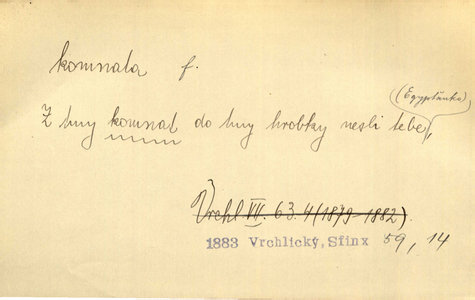 komnata f.
(Egypťanko)
Z tmy komnat do tmy hrobky nesli tebe,
Vrchl VII. 63.4 (1879-1882).
1883 Vrchlický, Sfinx 59, 14